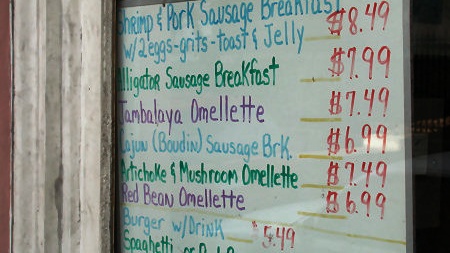 Shrimp & Pork Sausage Breakfast $8.49
w/2eggs-grits-toast & Jelly
Alligator Sausage Breakfast $7.99
Jambalaya Omellette $7.49
Cajun (Boudin) Sausage Brk. $6.99
Artichoke & Mushroom Omellette $7.49
Red Bean Omellette $6.99
Burger w/DRINK $5.49
Spaghetti or